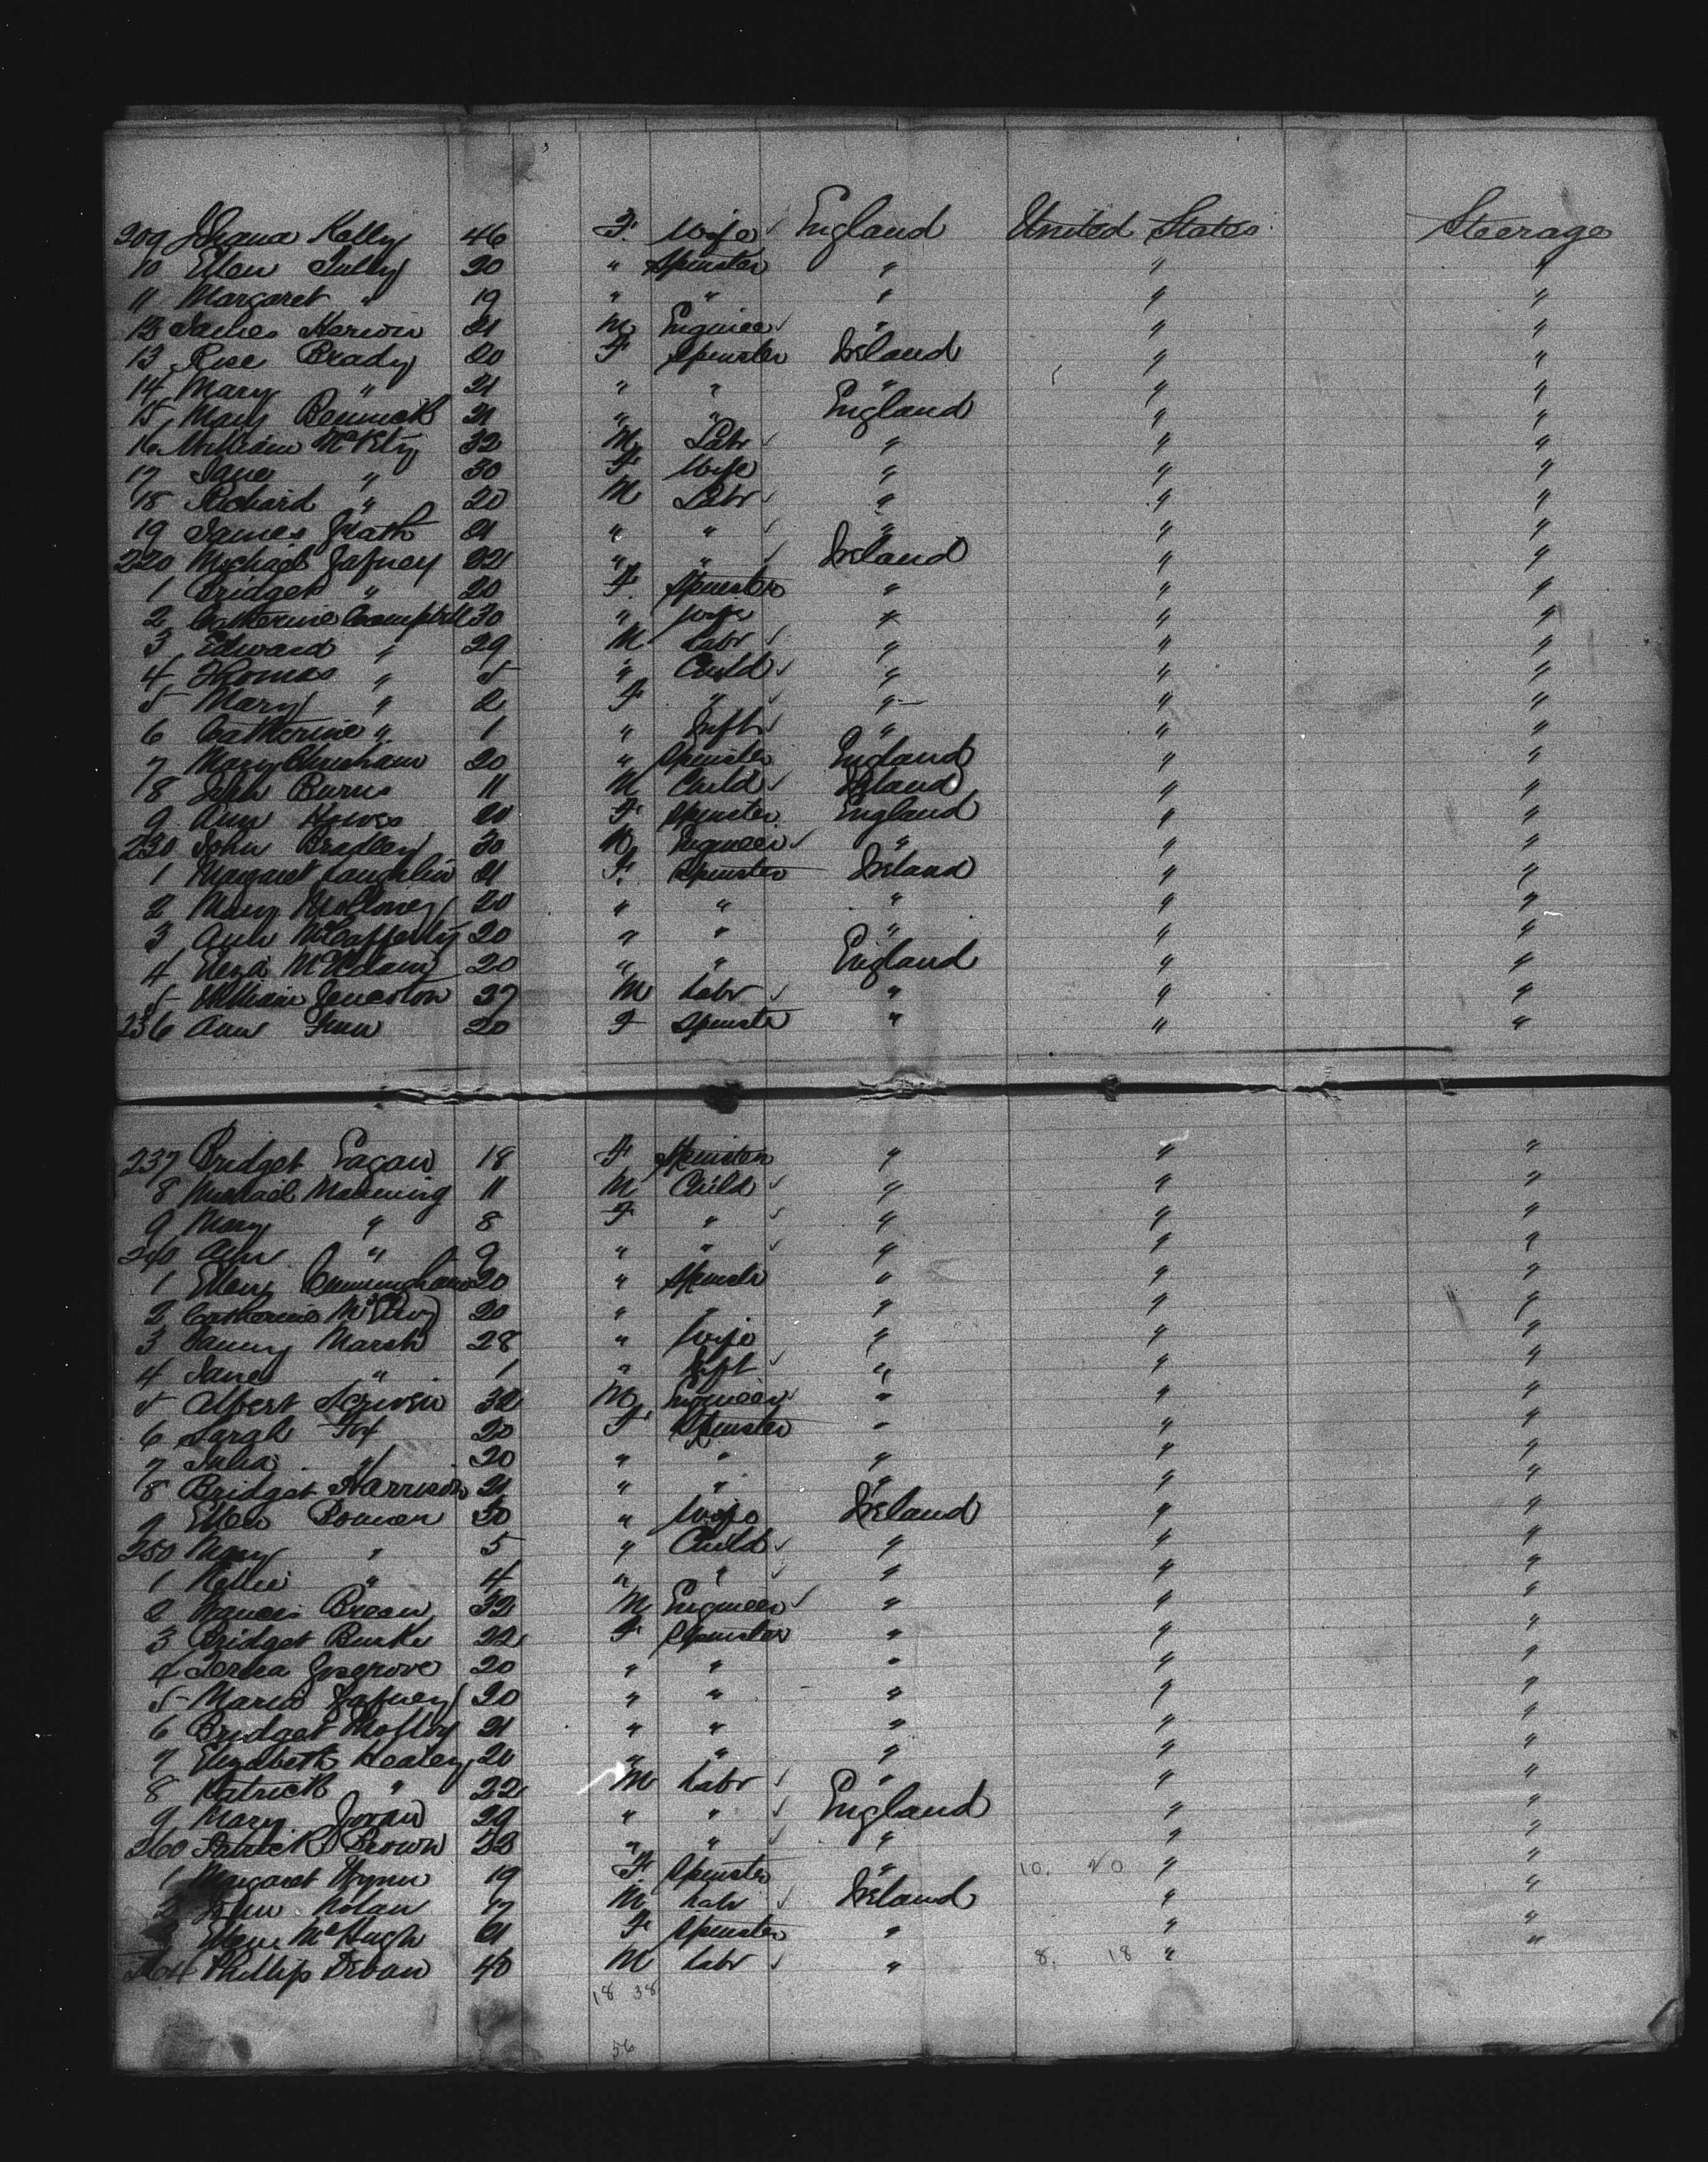 209 Johana Kelly 46 F. Wife England United States Steerage
10 Ellen Tully 20 " Spinster " " "
11 Margaret " 19 " " " " "
12 James 21 M Engineer " " "
13 Rose Brady 20 F Spinster Ireland " "
14 Mary " 21 " " " " "
15 Mary 21 " " England " "
16 William 32 M Labr " " "
17 Jane " 30 F Wife " " "
18 Richard " 20 M Labr " " "
19 James 21 " " " " "
220 Michael Gafney 22 " " Ireland " "
1 Bridget " 20 F. Spinster " " "
2 Catherine Campbell 30 " Wife " " "
3 Edward " 29 M Labr " " "
4 Thomas " 5 " Child " " "
5 Mary " 2 F " " " "
6 Catherine " 1 " Inft " " "
7 Mary 20 " Spinster England " "
8 John Burns 11 M Child Ireland " "
9 Ann 20 F Spinster England " "
230 John Bradley 30 M Engineer " " "
1 Margaret Laughlin 21 F. Spinster Ireland " "
2 Mary 20 " " " " "
3 Ann McCafferty 20 " " " " "
4 Eliza McAdam 20 " " England " "
5 William 27 M Labr " " "
236 Ann 20 F Spinster " " "
237 Bridget Eagan 18 F Spinster " " "
8 Michael Manning 11 M Child " " "
9 Mary " 8 F " " " "
240 Ann " 9 " " " " "
1 Ellen Cunningham 20 " Spinster " " "
2 Catherine 20 " " " " "
3 Fanny Marsh 28 " Wife " " "
4 Jane " 1 " Inft " " "
5 Albert Scriven 32 M Engineer " " "
6 Sarah Fox 20 F Spinster " " "
7 Julia " 20 " " " " "
8 Bridget Harrison 21 " " " " "
9 Ellen 30 " Wife Ireland " "
250 Mary " 5 " Child " " "
1 Nellie " 4 " " " " "
2 Francis 32 M Engineer " " "
3 Bridget Burke 22 F Spinster " " "
4 20 " " " " "
5 Maria Gafney 20 " " " " "
6 Bridget 21 " " " " "
7 Elizabeth Healey 20 " " " " "
8 Patrick " 22 M Labr " " "
9 Mary 29 " " England " "
260 Patrick Brown 33 " " " " "
1 Margaret Wynn 19 F Spinster " 10. 20 " "
2 John Nolan 47 M Labr Ireland " "
3 Ellen McHugh 21 F Spinster " " "
264 Phillip 40 M Labr " 8. 18 " "
18 38
56